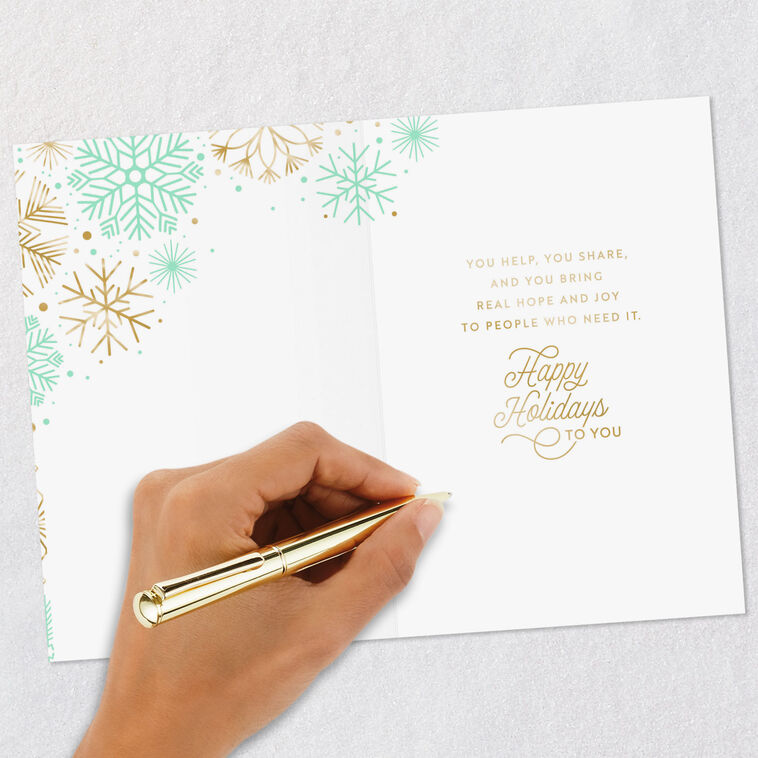 YOU HELP, YOU SHARE,
AND YOU BRING
REAL HOPE AND JOY
TO PEOPLE WHO NEED IT.
Happy
Holidays
TO YOU